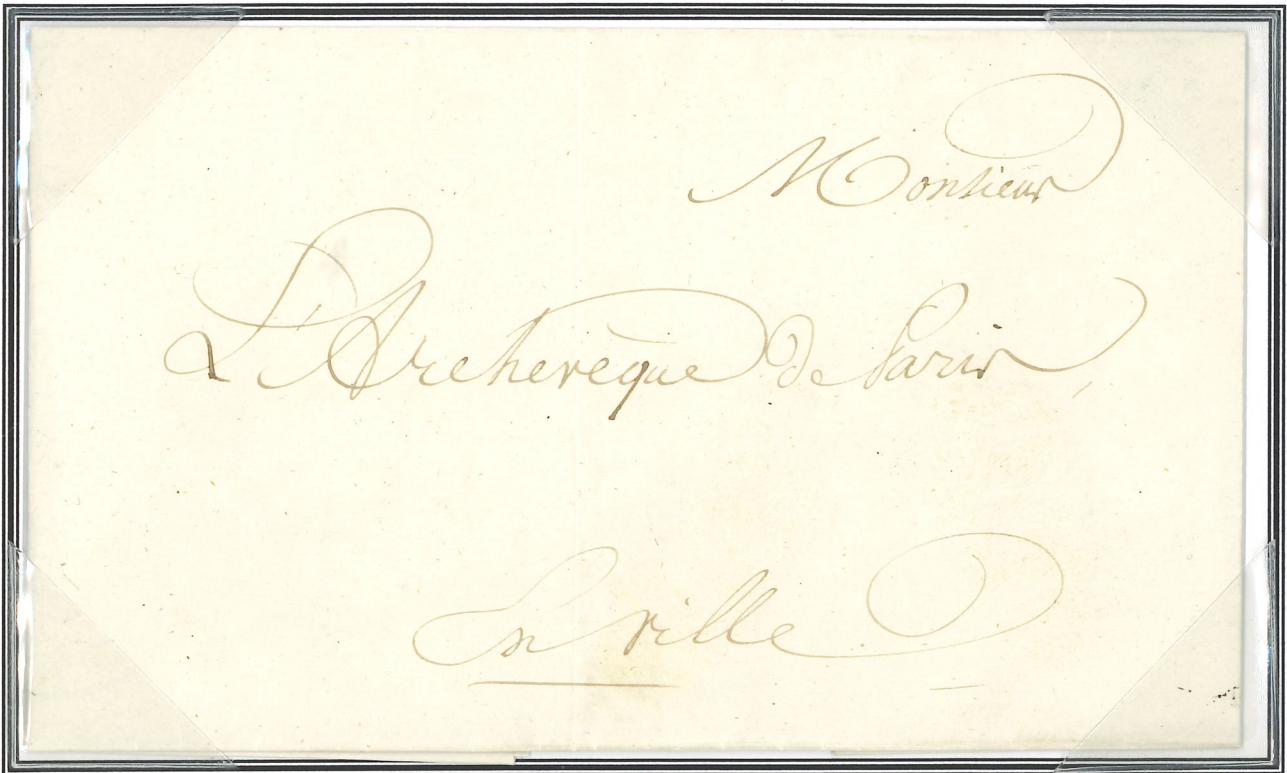 Monsieur
L'Archevêque de Paris
En ville